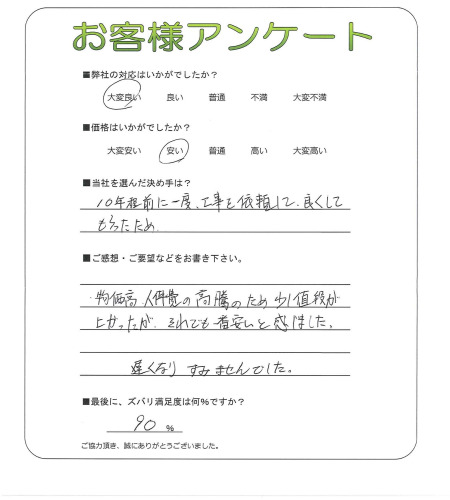 お客様アンケート
■弊社の対応はいかがでしたか?
大変良い 良い 普通 不満 大変不満
■価格はいかがでしたか?
大変安い 安い 普通 高い 大変高い
■当社を選んだ決め手は?
10年程前に一度、工事を依頼して、良くして
もらったため
■ご感想・ご要望などをお書き下さい。
物価高、人件費の高騰のため少し値段が
上がったが、それでも一番安いと感じました。
遅くなり すみませんでした。
■最後に、ズバリ満足度は何%ですか?
90 %
ご協力頂き、誠にありがとうございました。